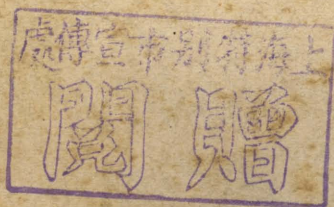 上海特別市宣傳處
贈閱